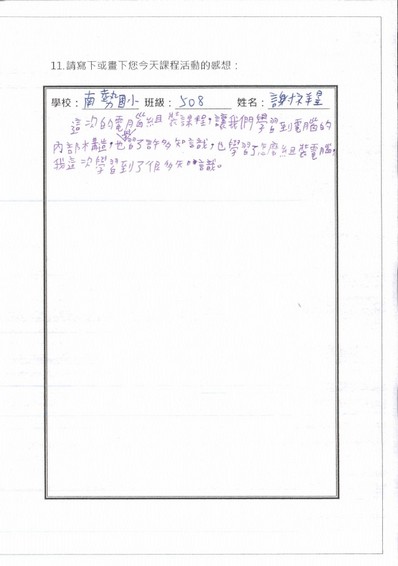 11.請寫下或畫下您今天課程活動的感想：
學校：南勢國小 班級：508 姓名：謝
這次的電腦組裝課程，讓我們學習到電腦的
內部構造，也學了許多知識，也學習了怎麼組裝電腦，
我這次學習到了很多知識。